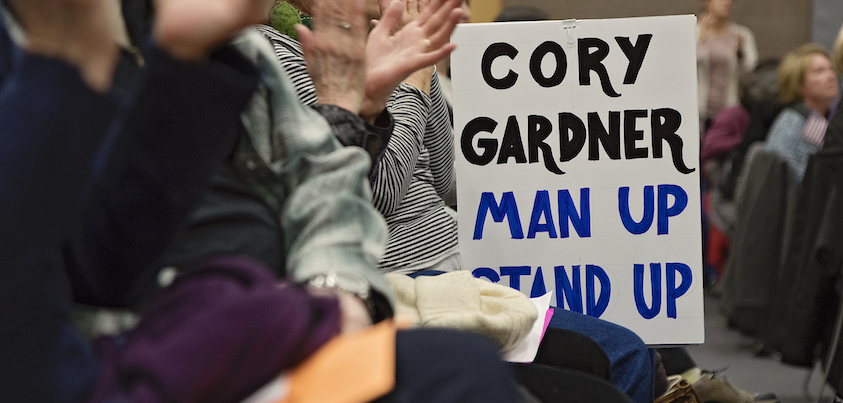 CORY
GARDNER
MAN UP
STAND UP